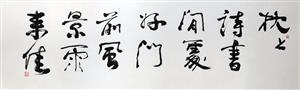 枕上
詩書
閒處
好門
前風
景雨
來佳